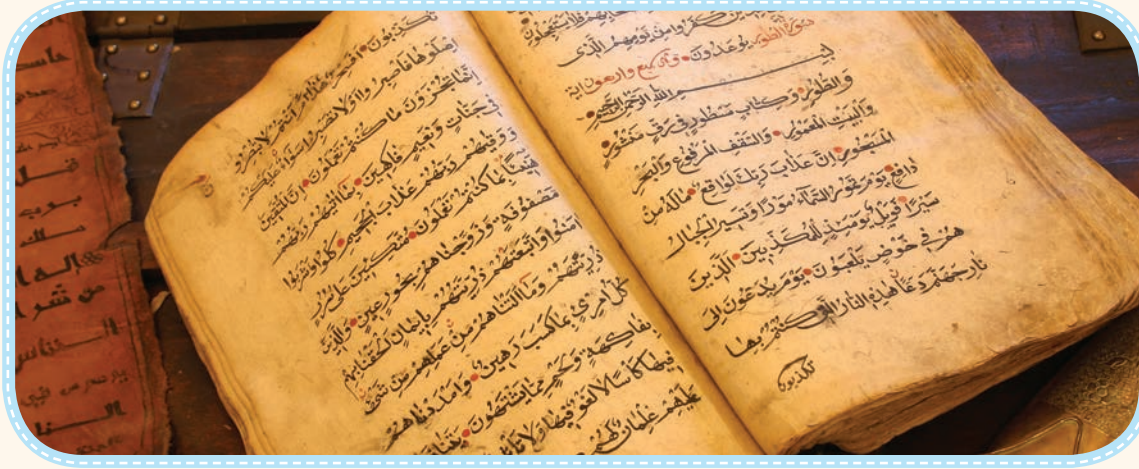 فلا يستعجلون
كفروا من يومهم الذي
يوعدون سورة الطور وهي سبع واربعون اية
بسم الله الرحمن الرحيم
والطور وكتاب مسطور في رق منشور
والبيت المعمور والسقف المرفوع والبحر
المسجور ان عذاب ربك لواقع ماله من
دافع يوم تمور السماء مورا وتسير الجبال
سيرا فويل يومئذ للمكذبين الذين
هم في خوض يلعبون يوم يدعون الى
نار جهنم دعا هذه النار التي كنتم بها
تكذبون
تكذبون افسحر هذا ام انتم لا تبصرون
اصلوها فاصبروا او لا تصبروا سواء عليكم
انما تجزون ما كنتم تعملون ان المتقين
في جنات ونعيم فاكهين بما اتيهم ربهم
ووقيهم ربهم عذاب الجحيم كلوا واشربوا
هنيئا بما كنتم تعملون متكئين على سرر
مصفوفة وزوجناهم بحور عين والذين
امنوا واتبعتهم ذريتهم بايمان الحقنا بهم
ذريتهم وما التناهم من عملهم من شئ
كل امرئ بما كسب رهين وامددناهم
بفاكهة ولحم مما يشتهون
فيها كاسا لا لغو فيها ولا
عليهم غلمان لهم
ملك
اله
من شر
الناس